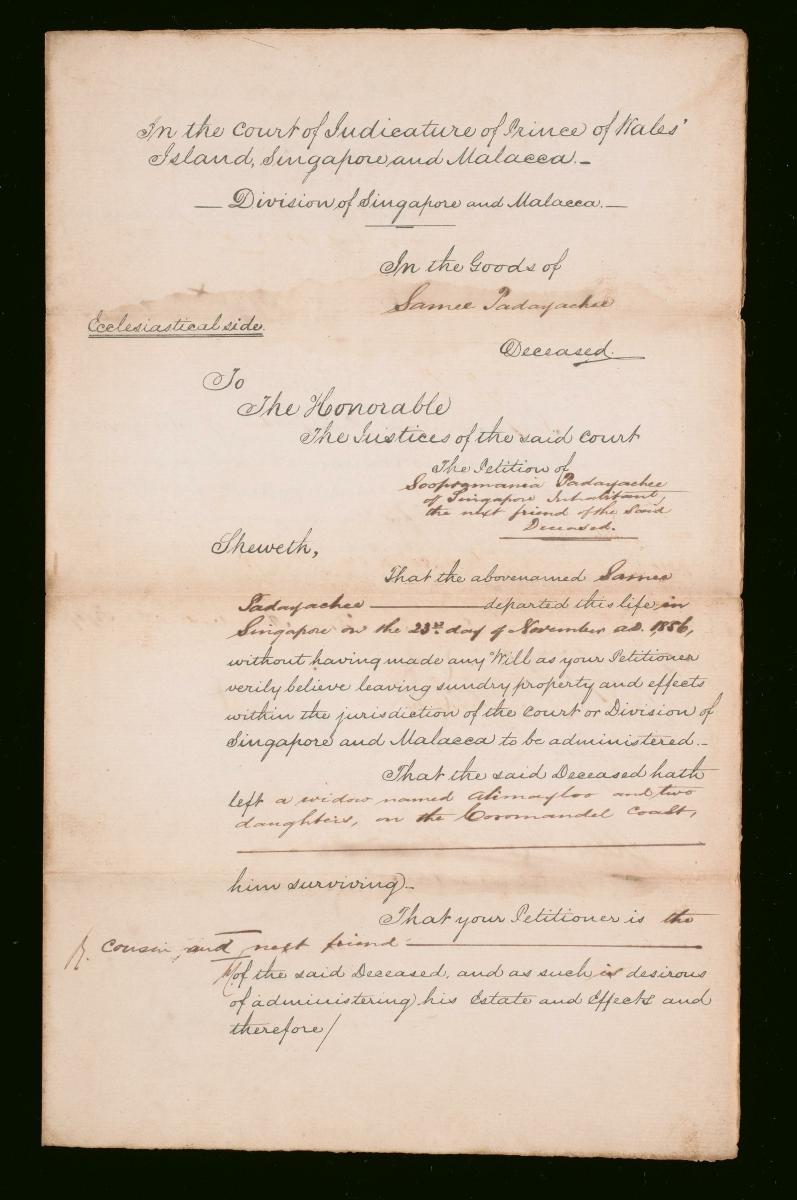 In the Court of Judicature of Prince of Wales'
Island, Singapore and Malacca.-
— Division of Singapore and Malacca.—
In the Goods of
Samee Padayachee
Ecclesiastical side.
Deceased.
To
The Honorable
The Justices of the said Court
The Petition of
Soopramania Padayachee
of Singapore Inhabitant,
the next friend of the Said
Deceased.
Sheweth,
That the abovenamed Samee
Padayachee — departed this life in
Singapore on the 23rd. day of November a.d. 1856,
without having made any Will as your Petitioner
verily believe leaving sundry property and effects
within the jurisdiction of the Court or Division of
Singapore and Malacca to be administered.-
That the said Deceased hath
left a widow named and two
daughters, on the Coromandel Coast,
him surviving.-
That your Petitioner is the
cousin, and next friend —
of the said Deceased, and as such is desirous
of administering his Estate and Effects and
therefore/